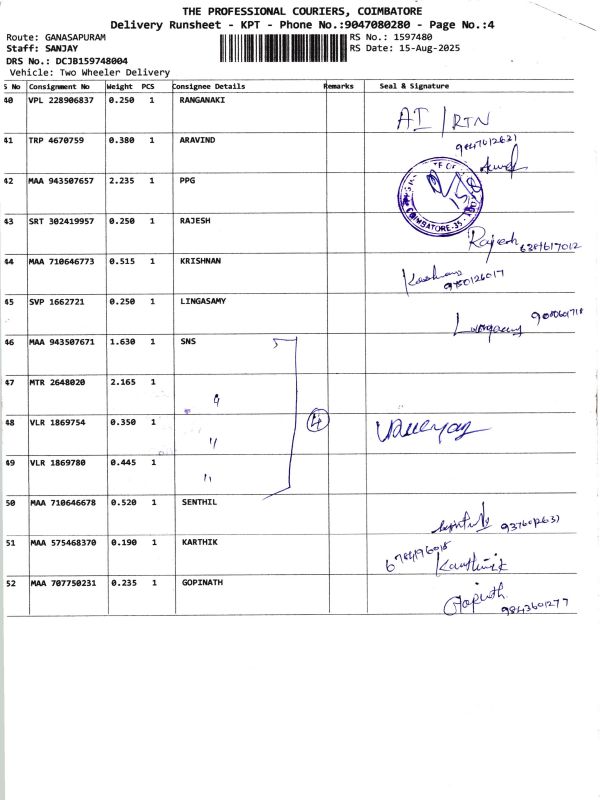 THE PROFESSIONAL COURIERS, COIMBATORE
Delivery Runsheet - KPT - Phone No.:9047080280 - Page No.:4
Route: GANASAPURAM RS No.: 1597480
Staff: SANJAY RS Date: 15-Aug-2025
DRS No.: DCJB159748004
Vehicle: Two Wheeler Delivery
S No Consignment No Weight PCS Consignee Details Remarks Seal & Signature
40 VPL 228906837 0.250 1 RANGANAKI
AI / RTN
41 TRP 4670759 0.380 1 ARAVIND
42 MAA 943507657 2.235 1 PPG
COIMBATORE-35
43 SRT 302419957 0.250 1 RAJESH
Rajesh 6381617012
44 MAA 710646773 0.515 1 KRISHNAN
9750126017
45 SVP 1662721 0.250 1 LINGASAMY
46 MAA 943507671 1.630 1 SNS
47 MTR 2648020 2.165 1 "
48 VLR 1869754 0.350 1 " 4
49 VLR 1869780 0.445 1 "
50 MAA 710646678 0.520 1 SENTHIL
51 MAA 575468370 0.190 1 KARTHIK
Karthick
52 MAA 707750231 0.235 1 GOPINATH
Gopinath
9843601277